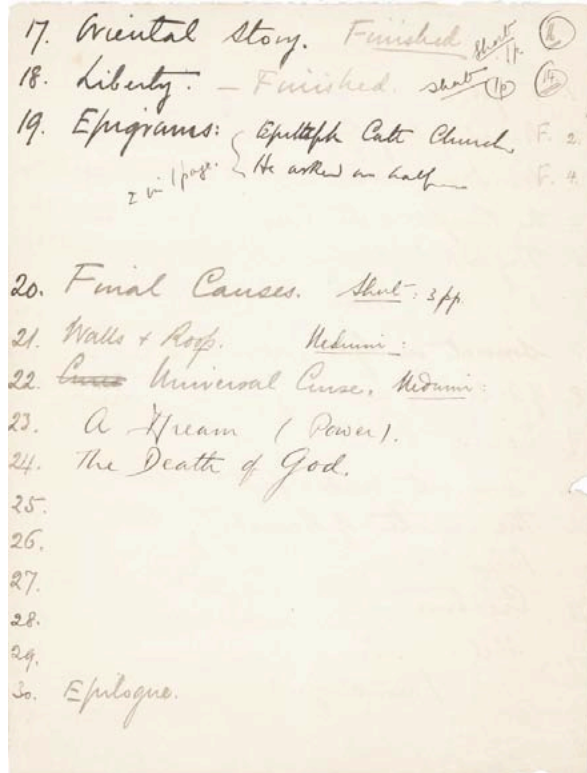 17. Oriental Story. Finished Short 1p.
18. Liberty. – Finished. short 1p 14.
19. Epigrams: Epitaph Cath Church F. 2.
2 in 1 page. He asked an half F. 4.
20. Final Causes. Short: 3pp.
21. Walls + Roofs. Medium:
22. Universal Curse. Medium:
23. A Dream (Power).
24. The Death of God.
25.
26.
27.
28.
29.
30. Epilogue.